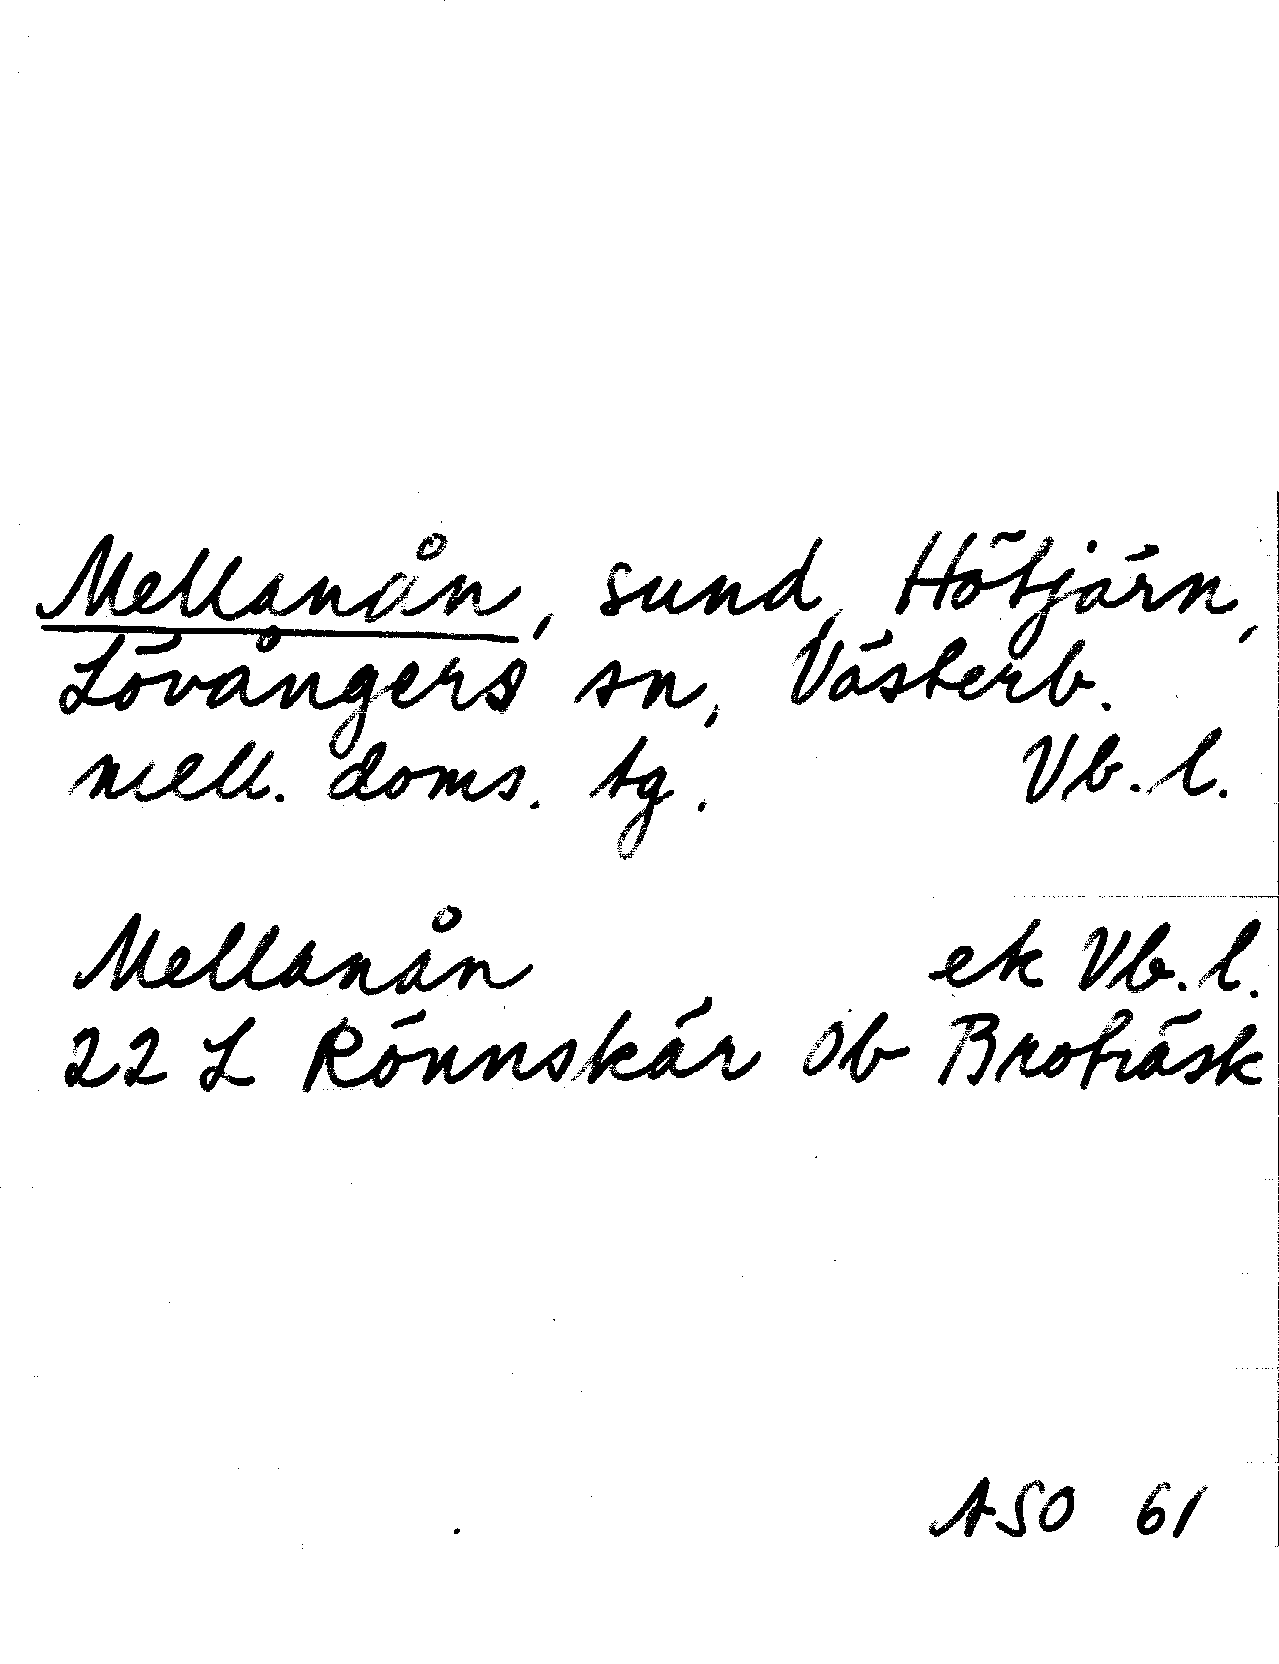 Mellanån, sund, Hötjärn,
Lövångers sn, Västerb.
mell. doms. tg. Vb. l.
Mellanån ek Vb. l.
22 L Rönnskär Ob Broträsk
ASO 61